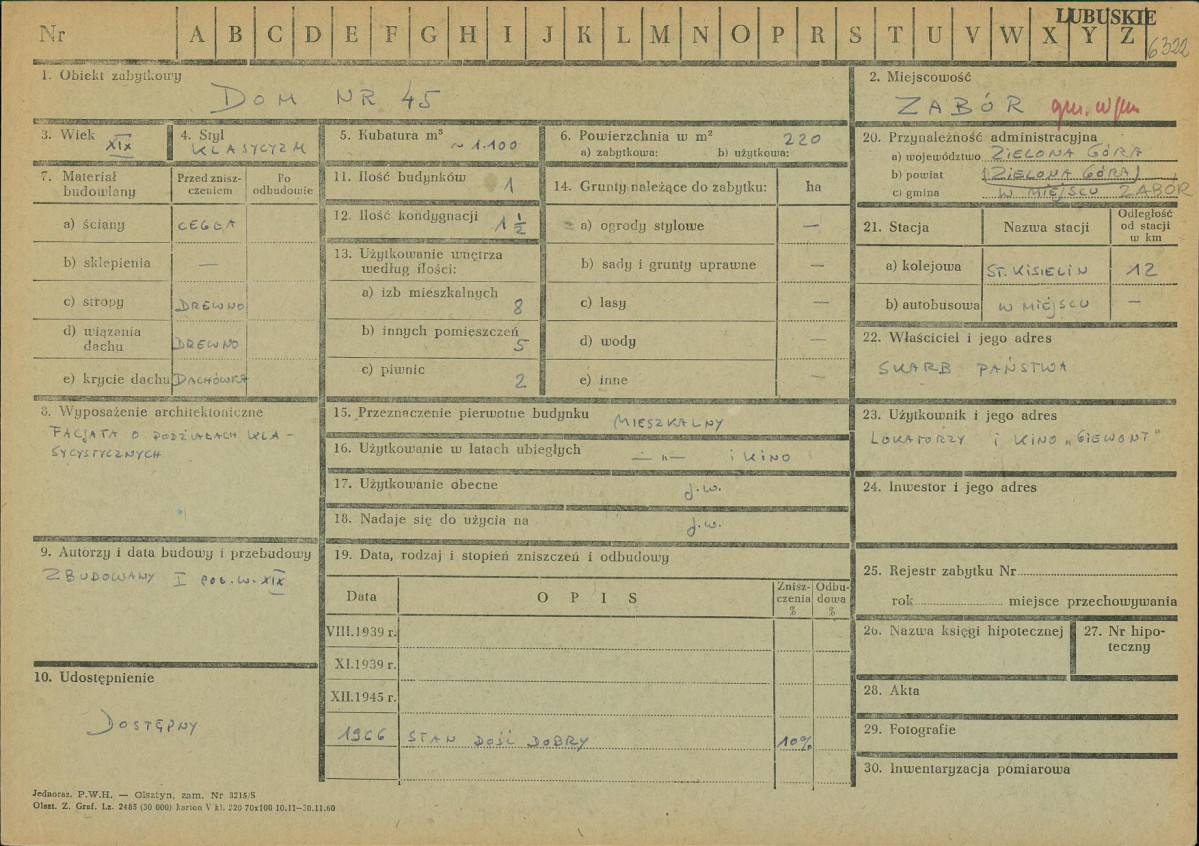 LUBUSKIE
Nr A B C D E F G H I J K L M N O P R S T U V W X Y Z 6322
1. Obiekt zabytkowy
DOM NR 45
2. Miejscowość
ZABÓR
3. Wiek XIX
4. Styl KLASYCYZM
5. Kubatura m³ ~ 1.100
6. Powierzchnia w m² 220
a) zabytkowa: b) użytkowa:
20. Przynależność administracyjna
a) województwo ZIELONA GÓRA
b) powiat (ZIELONA GÓRA)
c) gmina W MIEJSCU ZABÓR
7. Materiał budowlany
Przed zniszczeniem
Po odbudowie
a) ściany CEGŁA
b) sklepienia —
c) stropy DREWNO
d) wiązania dachu DREWNO
e) krycie dachu DACHÓWKA
11. Ilość budynków 1
12. Ilość kondygnacji 1 1/2
13. Użytkowanie wnętrza według ilości:
a) izb mieszkalnych 8
b) innych pomieszczeń 5
c) piwnic 2
14. Grunty należące do zabytku: ha
a) ogrody stylowe —
b) sady i grunty uprawne —
c) lasy —
d) wody —
e) inne —
21. Stacja Nazwa stacji Odległość od stacji w km
a) kolejowa ST. KISIELIN 12
b) autobusowa W MIEJSCU —
22. Właściciel i jego adres
SKARB PAŃSTWA
8. Wyposażenie architektoniczne
FACJATA O PODZIAŁACH KLA-
SYCYSTYCZNYCH
15. Przeznaczenie pierwotne budynku MIESZKALNY
16. Użytkowanie w latach ubiegłych — „— I KINO
17. Użytkowanie obecne j.w.
18. Nadaje się do użycia na j.w.
23. Użytkownik i jego adres
LOKATORZY I KINO „GIEWONT"
24. Inwestor i jego adres
9. Autorzy i data budowy i przebudowy
ZBUDOWANY I POŁ. W. XIX
19. Data, rodzaj i stopień zniszczeń i odbudowy
Data OPIS Zniszczenia % Odbudowa %
VIII.1939 r.
XI.1939 r.
XII.1945 r.
1966 STAN DOŚĆ DOBRY 10%
25. Rejestr zabytku Nr
rok miejsce przechowywania
26. Nazwa księgi hipotecznej
27. Nr hipoteczny
28. Akta
29. Fotografie
30. Inwentaryzacja pomiarowa
10. Udostępnienie
DOSTĘPNY
Jednoraz. P.W.H. — Olsztyn, zam. Nr 3215/S
Olszt. Z. Graf. Lz. 2465 (30 000) karton V kl. 220 70x100 10.11—30.11.60